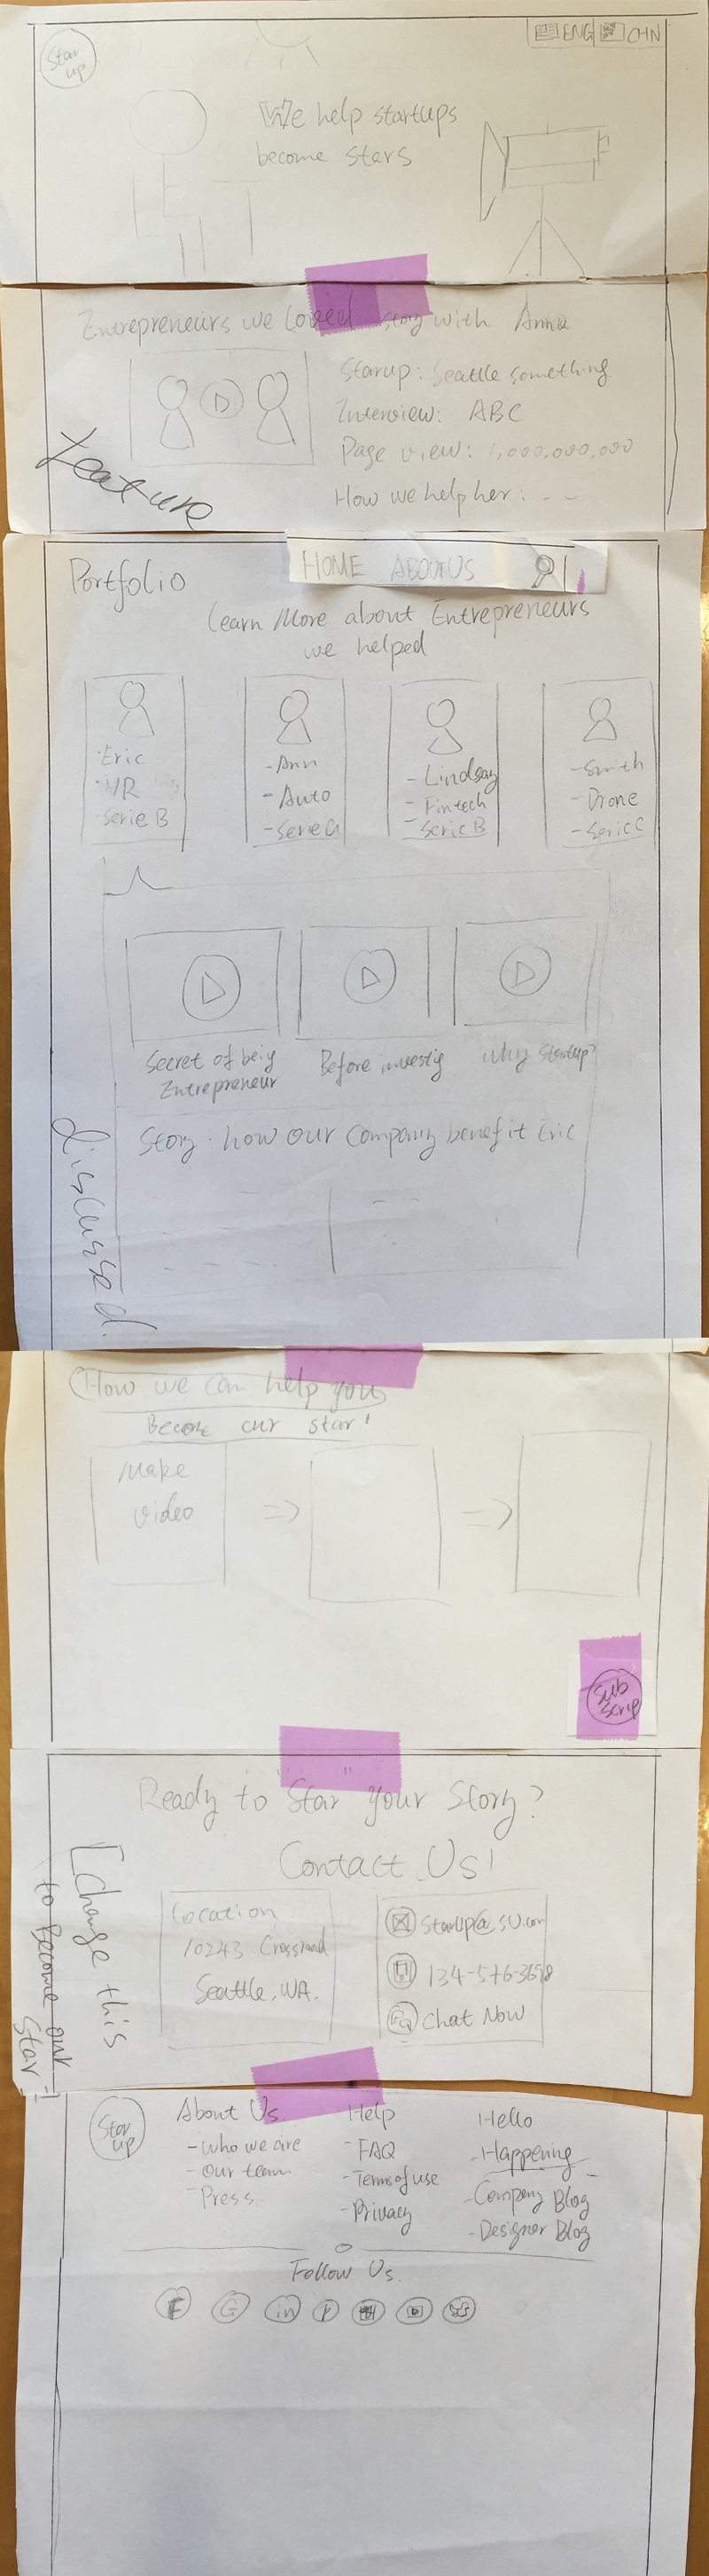 Star
up
ENG CHN
We help startups
become stars
Entrepreneurs we loved story with Anna
Starup: Seattle something
Interview: ABC
Page view: 1,000,000,000
How we help her:
feature
HOME ABOUT US
Portfolio
Learn More about Entrepreneurs
we helped
·Eric
·VR
·Serie B
-Ann
-Auto
-Serie A
-Lindsay
-Fintech
-Serie B
-Smith
-Drone
-Serie C
Secret of beiy
Entrepreneur
Before investig
Why Startup?
Story: how our Company benefit Eric
discussed.
How we can help you
Become our star!
Make
video
Sub
scrip
Ready to "Star" your Story?
Contact Us!
[Change this
to Become our
Star!]
Location
10243 Crossroad
Seattle, WA.
StarUp@SU.com
134-576-3698
Chat Now
Star
up
About Us
-Who we are
-Our team
-Press
Help
-FAQ
-Terms of use
-Privacy
Hello
-Happening
-Company Blog
-Designer Blog
Follow Us
F G in P